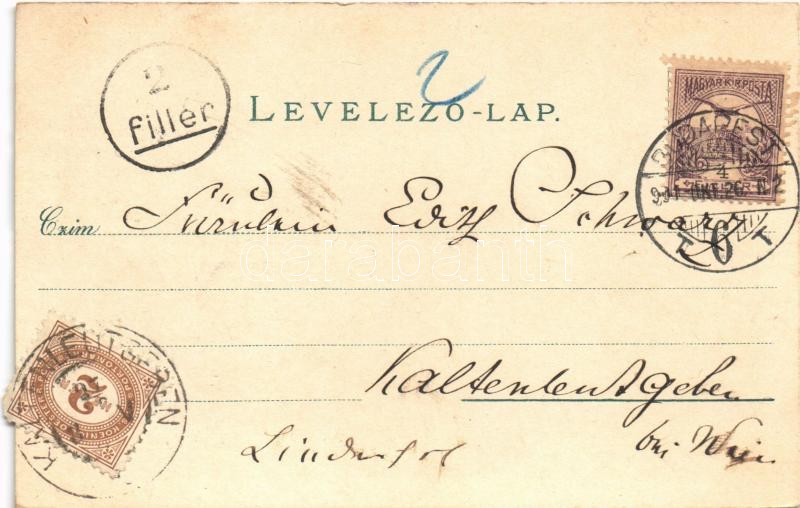 2
2
filler
LEVELEZŐ-LAP.
MAGYAR KIR. POSTA
BUDAPEST
6
T T
Czim Fräulein Edith Schwarz
darabanth
Kaltenleutgeben
bei Wien
Lindenhof
KALTENLEUTGEBEN
2